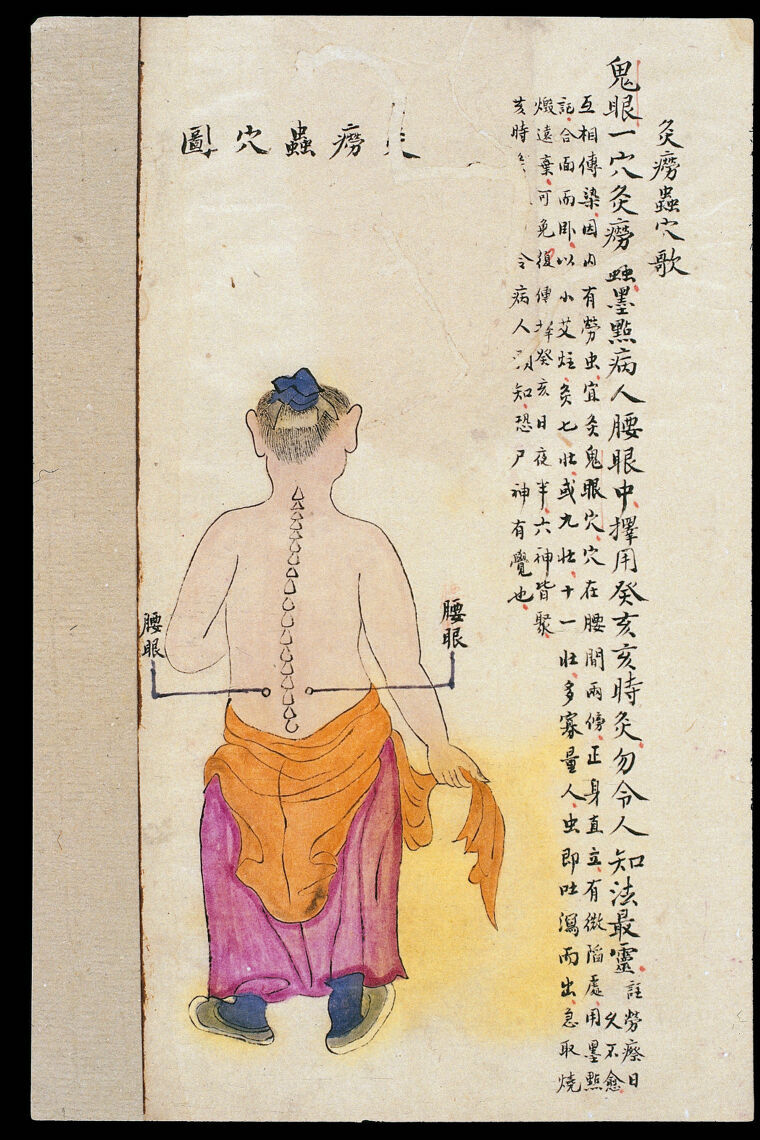 灸癆蟲穴歌
鬼眼一穴灸癆蟲墨點病人腰眼中擇用癸亥亥時灸勿令人知法最靈
註勞瘵日
久不愈
互相傳染因內有勞虫宜灸鬼眼穴穴在腰間兩傍正身直立有微陷處用墨點
記合面而卧以小艾炷灸七壯或九壯十一壯多寡量人虫即吐瀉而出急取燒
燬遠棄可免復傳擇癸亥日夜半六神皆聚
亥時令病人知恐尸神有覺也
癆蟲穴圖
腰眼
腰眼